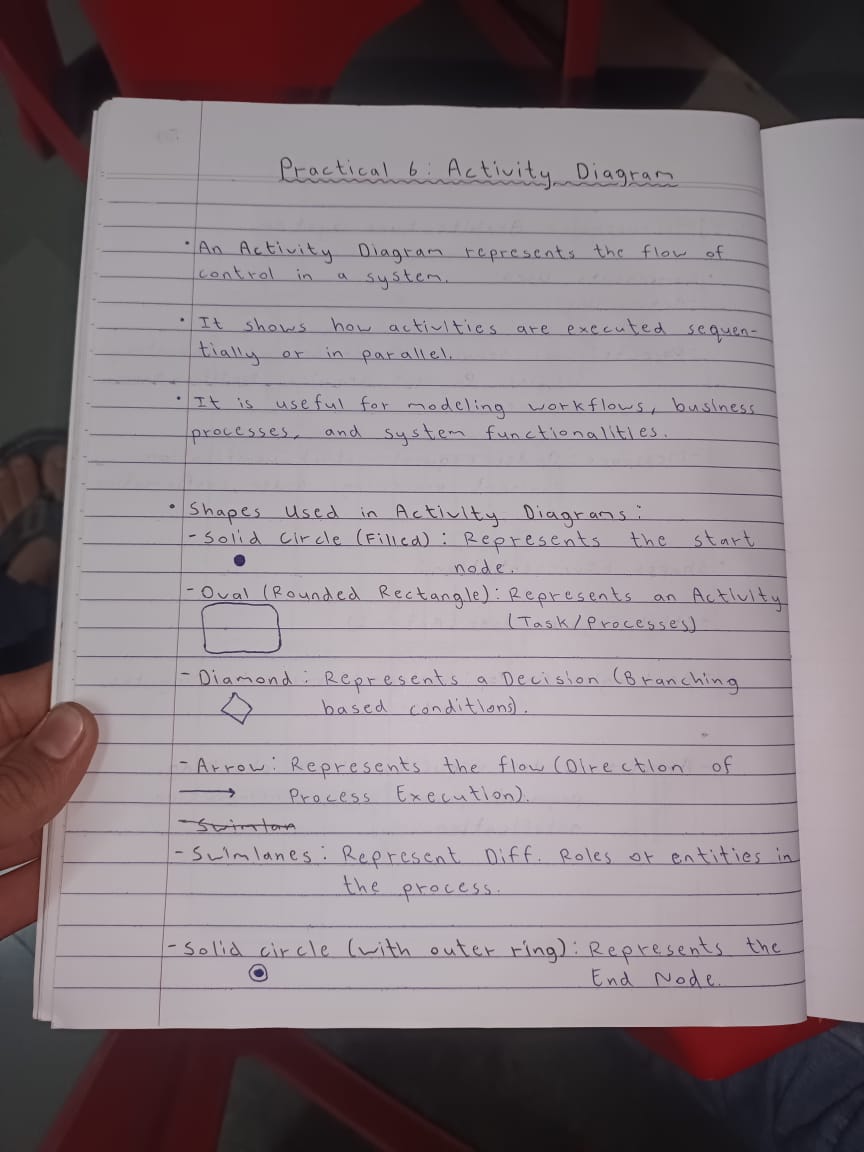 Practical 6: Activity Diagram
• An Activity Diagram represents the flow of
control in a system.
• It shows how activities are executed sequen-
tially or in parallel.
• It is useful for modeling workflows, business
processes, and system functionalities.
• Shapes Used in Activity Diagrams:
- Solid Circle (Filled): Represents the start
node.
- Oval (Rounded Rectangle): Represents an Activity
(Task/Processes)
- Diamond: Represents a Decision (Branching
based conditions).
- Arrow: Represents the flow (Direction of
Process Execution).
- Swimlan
- Swimlanes: Represent Diff. Roles or entities in
the process.
- Solid circle (with outer ring): Represents the
End Node.